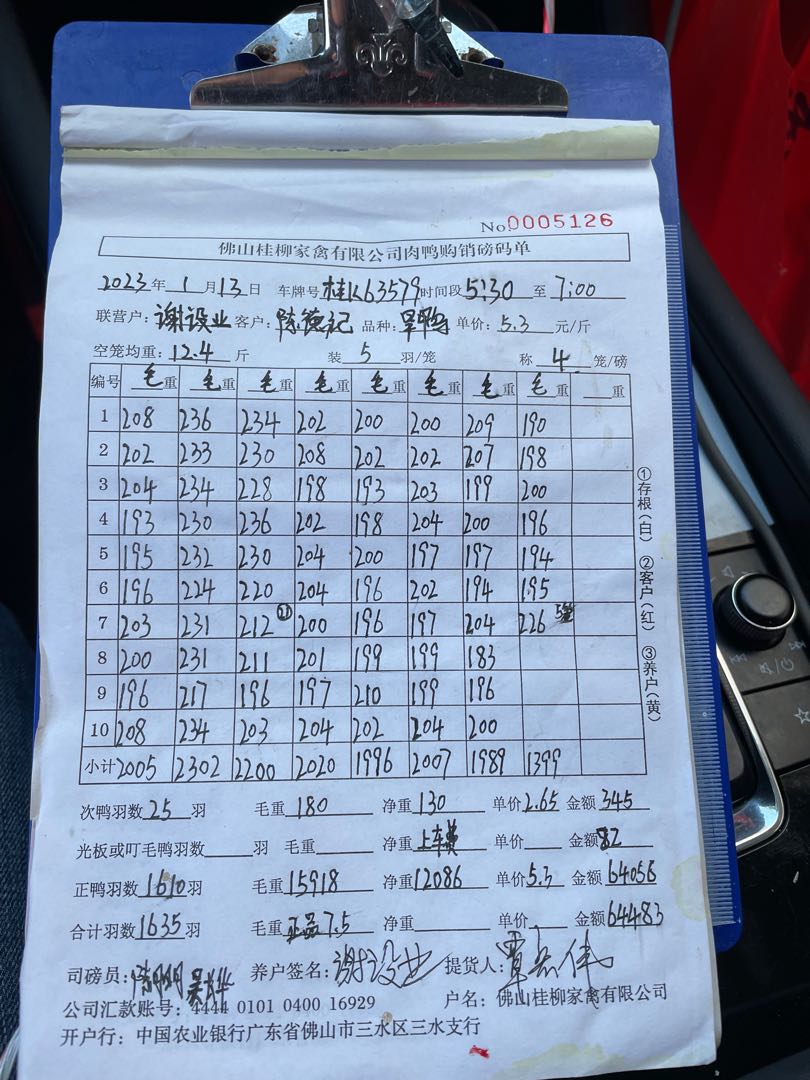 No.0005126
佛山桂柳家禽有限公司肉鸭购销磅码单
2023年 1月13日 车牌号 桂K63579 时间段 5:30 至 7:00
联营户: 谢设业 客户: 陈德记 品种: 单价: 5.3 元/斤
空笼均重: 12.4 斤 装 5 羽/笼 称 4 笼/磅
编号 毛重 毛重 毛重 毛重 毛重 毛重 毛重 毛重 重
1 208 236 234 202 200 200 209 190
2 202 233 230 208 202 202 207 198
3 204 234 228 198 193 203 199 200
4 193 230 236 202 198 204 200 196
5 195 232 230 204 200 197 197 194
6 196 224 220 204 196 202 194 195
7 203 231 212 200 196 197 204 226
8 200 231 211 201 199 199 183
9 196 217 196 197 210 199 196
10 208 234 203 204 202 204 200
小计 2005 2302 2200 2020 1996 2007 1989 1399
次鸭羽数 25 羽 毛重 180 净重 130 单价 2.65 金额 345
光板或叮毛鸭羽数 羽 毛重 净重 上车费 单价 金额 82
正鸭羽数 1610 羽 毛重 15918 净重 12086 单价 5.3 金额 64056
合计羽数 1635 羽 毛重 正品7.5 净重 单价 金额 64483
司磅员: 养户签名: 谢设业 提货人:
公司汇款账号: 4444 0101 0400 16929 户名: 佛山桂柳家禽有限公司
开户行: 中国农业银行广东省佛山市三水区三水支行
①存根(白) ②客户(红) ③养户(黄)